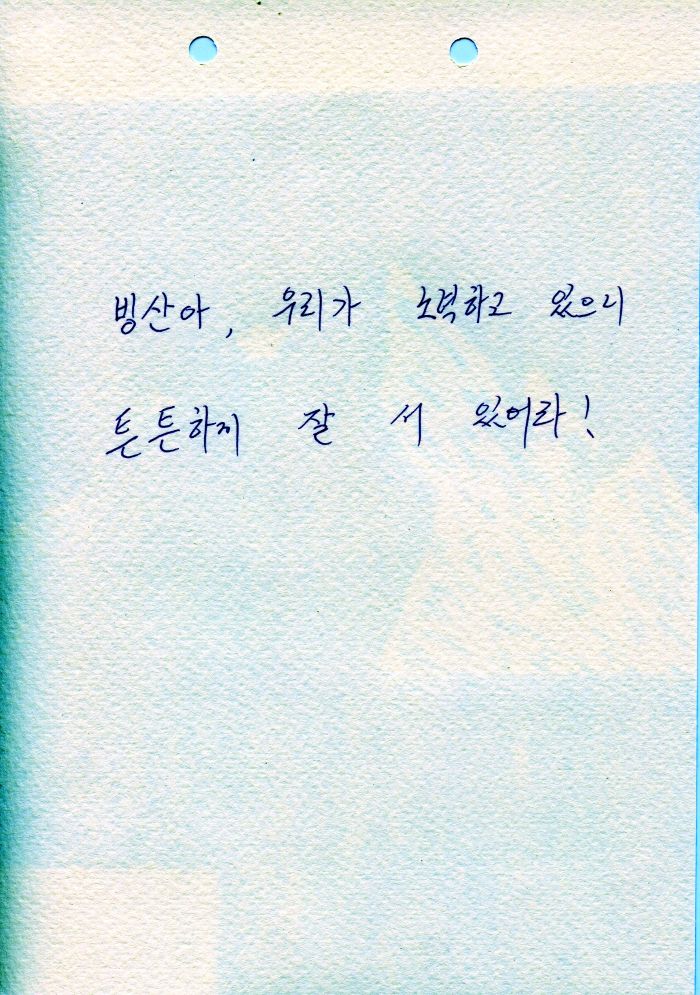 빙산아, 우리가 노력하고 있으니
튼튼하게 잘 서 있어라!